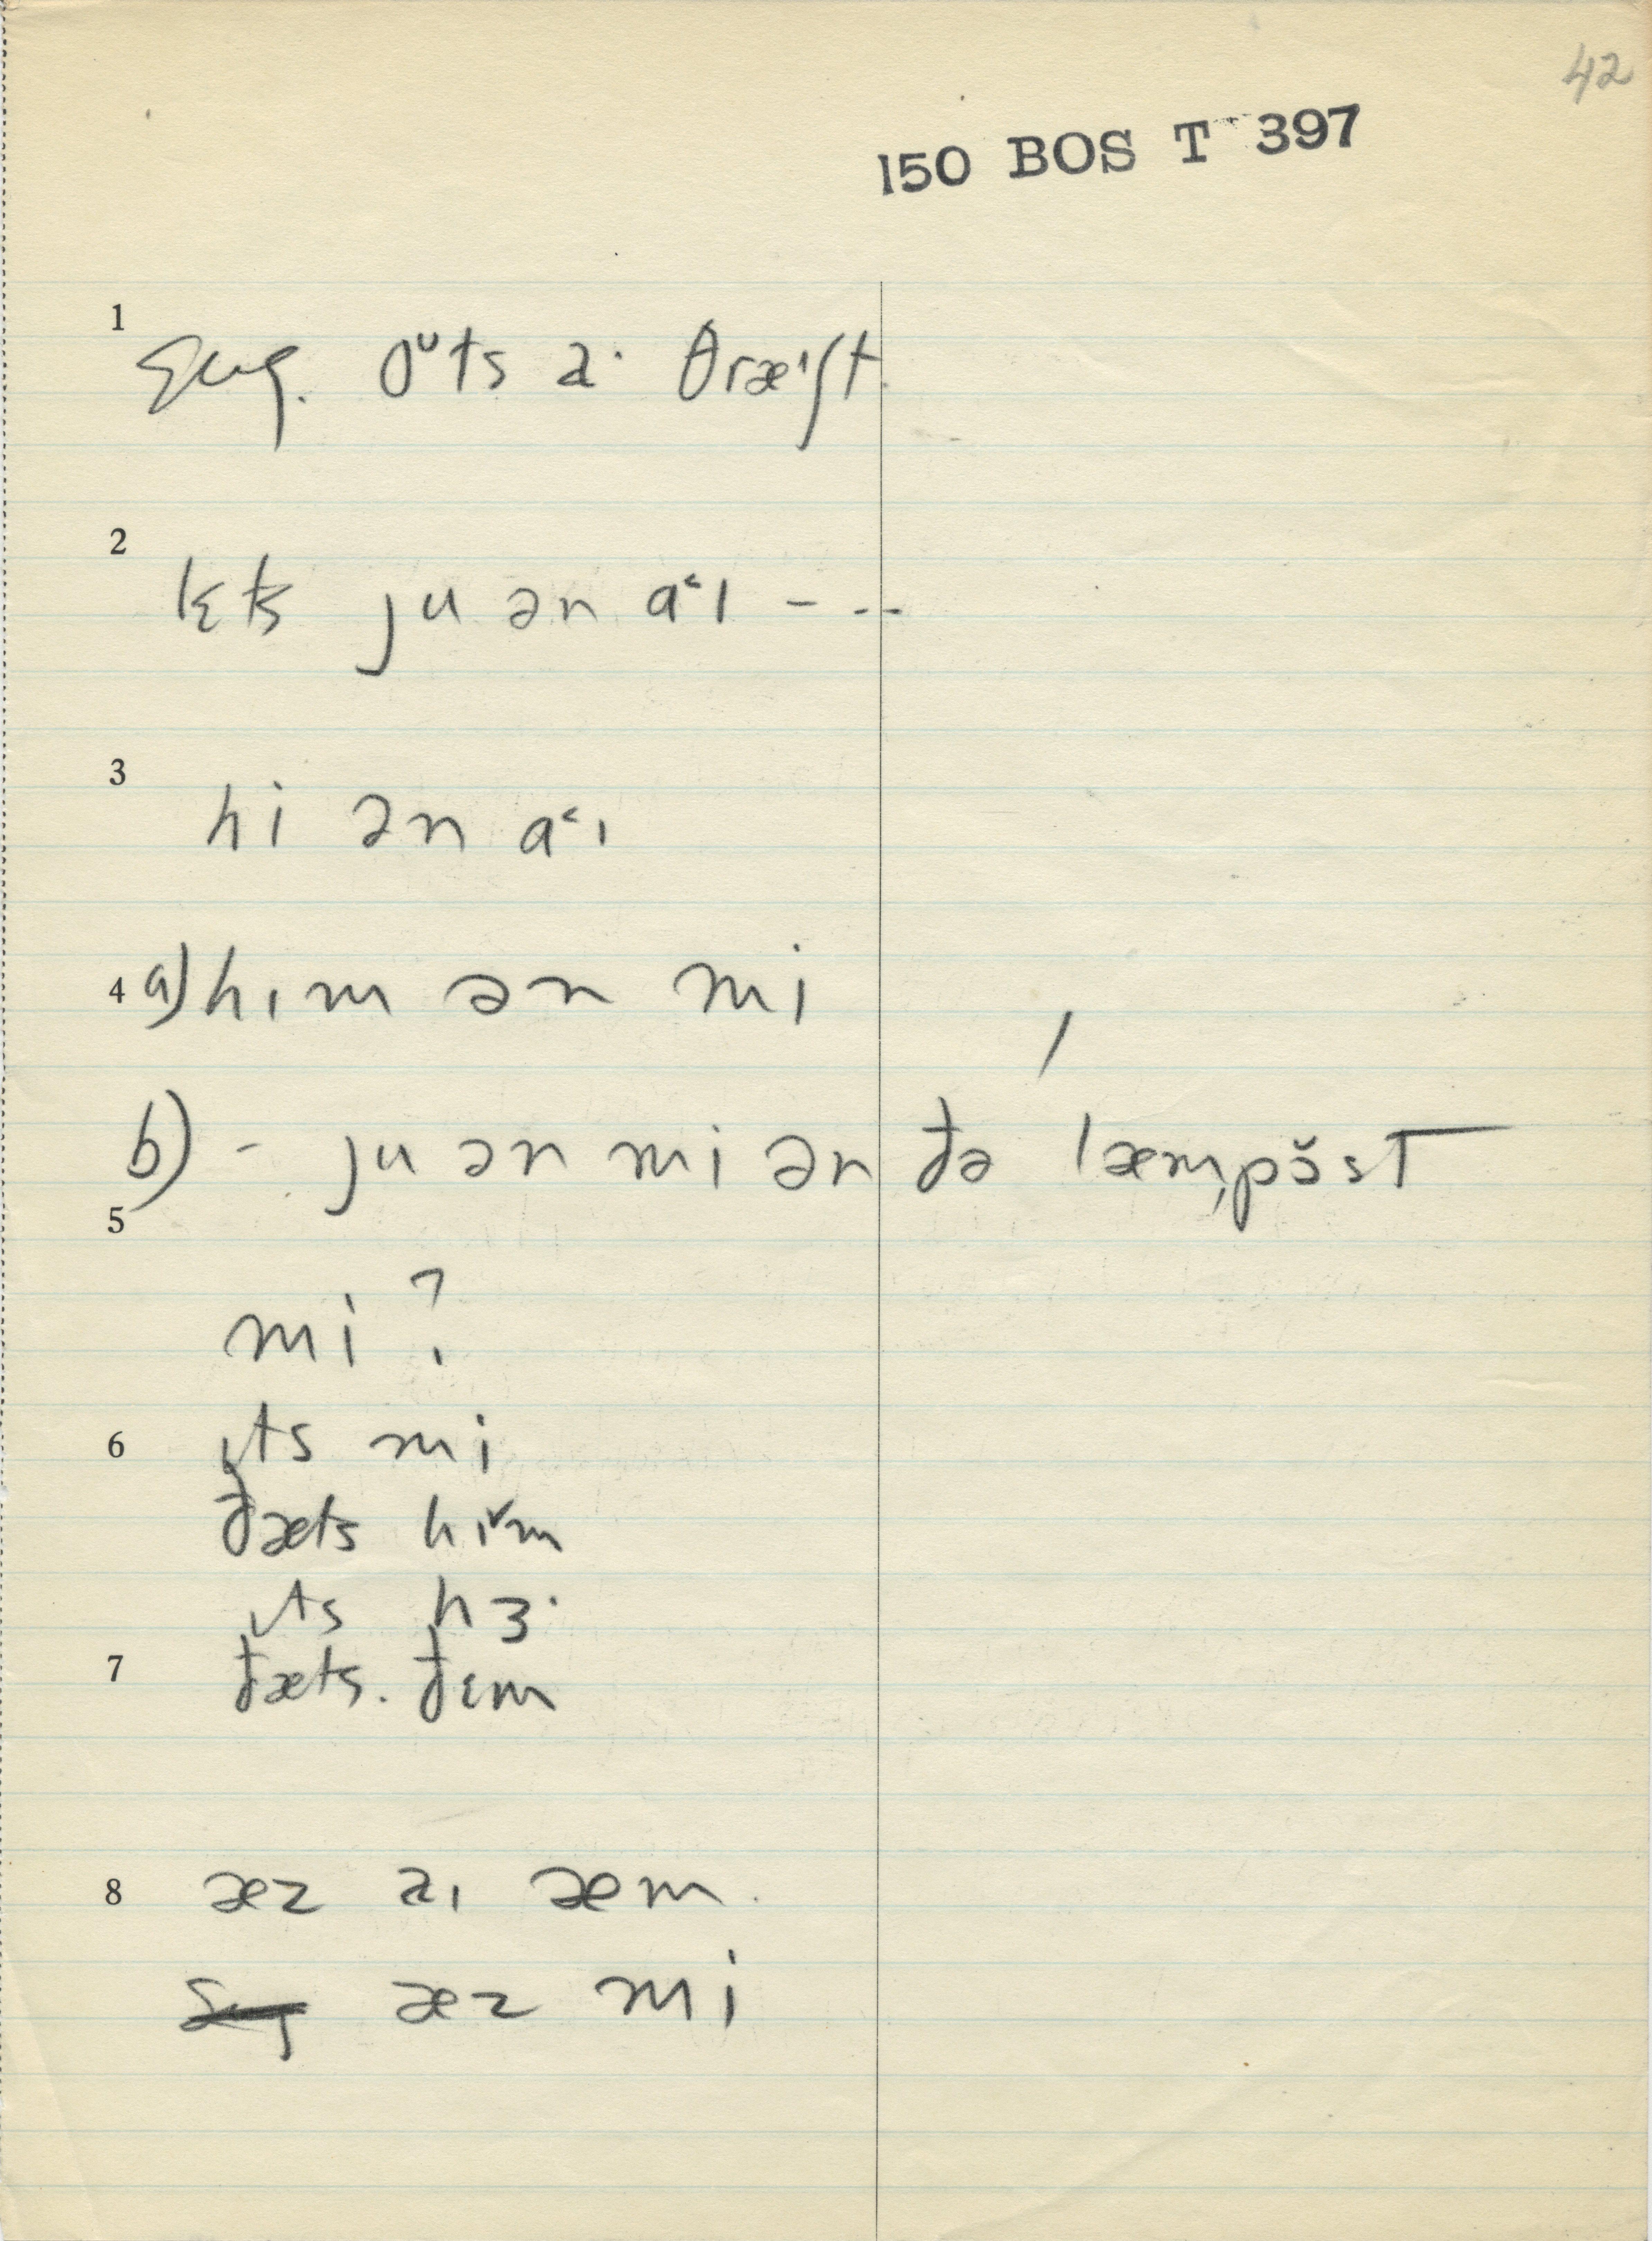 42
150 BOS T 397
1
sug. oᵘts a· θræ'ʃt
2
lɛts ju ən aˁɪ - - -
3
hi ən aˁɪ
4 a) hɪm ən mi
b) - ju ən mi ən ðə ˈlæm,pɔ̆st
5
mi?
6 ɪts mi
ðæts hɪˇm
ɪts hɜ·
7 ðæts. ðɛm
8 æz aɪ æm.
æz mi